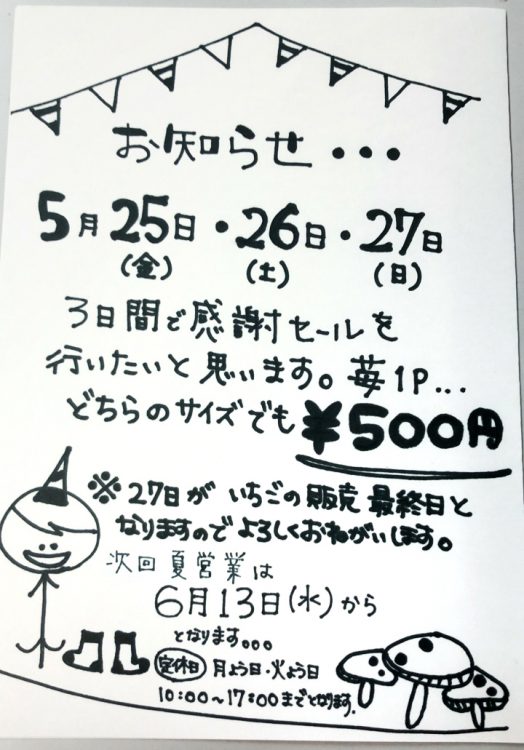 お知らせ・・・
5月25日・26日・27日
(金) (土) (日)
3日間で感謝セールを
行いたいと思います。苺1P...
どちらのサイズでも ¥500円
※27日が いちごの販売 最終日と
なりますので よろしくおねがいします。
次回 夏営業は
6月13日(水)から
となります。。。
定休日 月よう日・火よう日
10:00〜17:00までとなります.